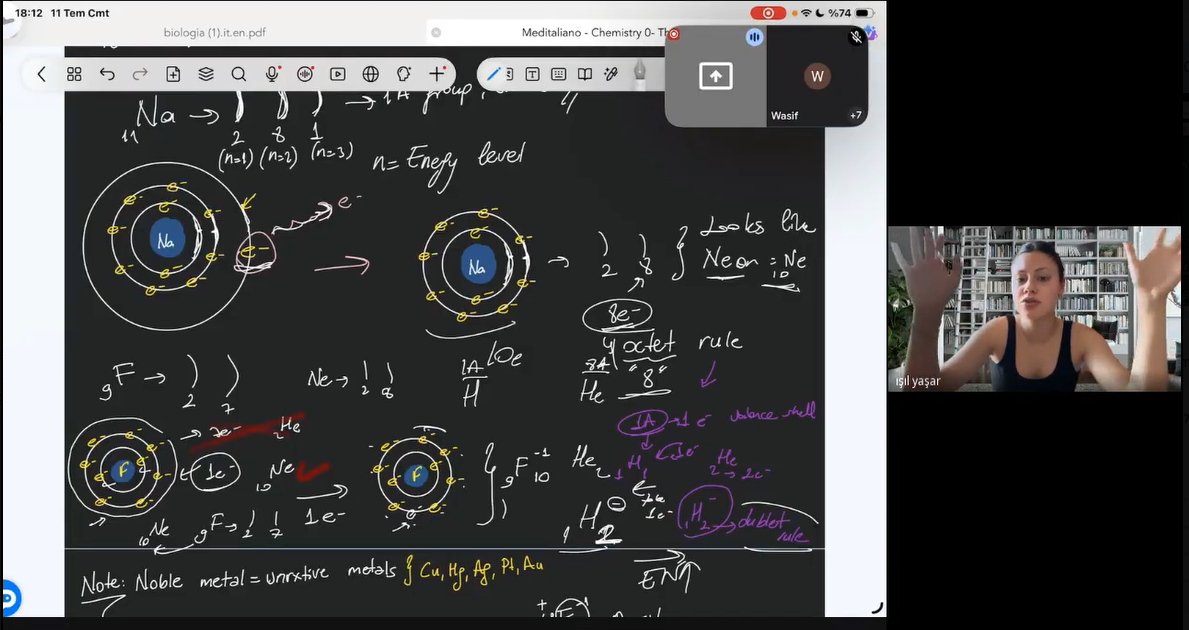 18:12 11 Tem Cmt
%74
biologia (1).it.en.pdf
Meditaliano - Chemistry 0- Th
W
Wasif
+7
11Na → 2 8 1 → 1A group
(n=1) (n=2) (n=3)
n= Enegy level
Na
e-
e-
Na
→ 2 8 } Looks like
Neon = 10Ne
8e-
octet rule
"8"
9F → 2 7
Ne → 2 8
1A
H
8A
He
1A → 1 e- valence shell
F
2He
1e-
10Ne
F
9F-1 10
He2
1H1
1e-
2He
→ 2e-
10Ne
9F → 2 7
1e-
1H2-
1e-
1H2- → dublet
rule
Note: Noble metal = unrxtive metals { Cu, Hg, Ag, Pt, Au
EN↑
ışıl yaşar